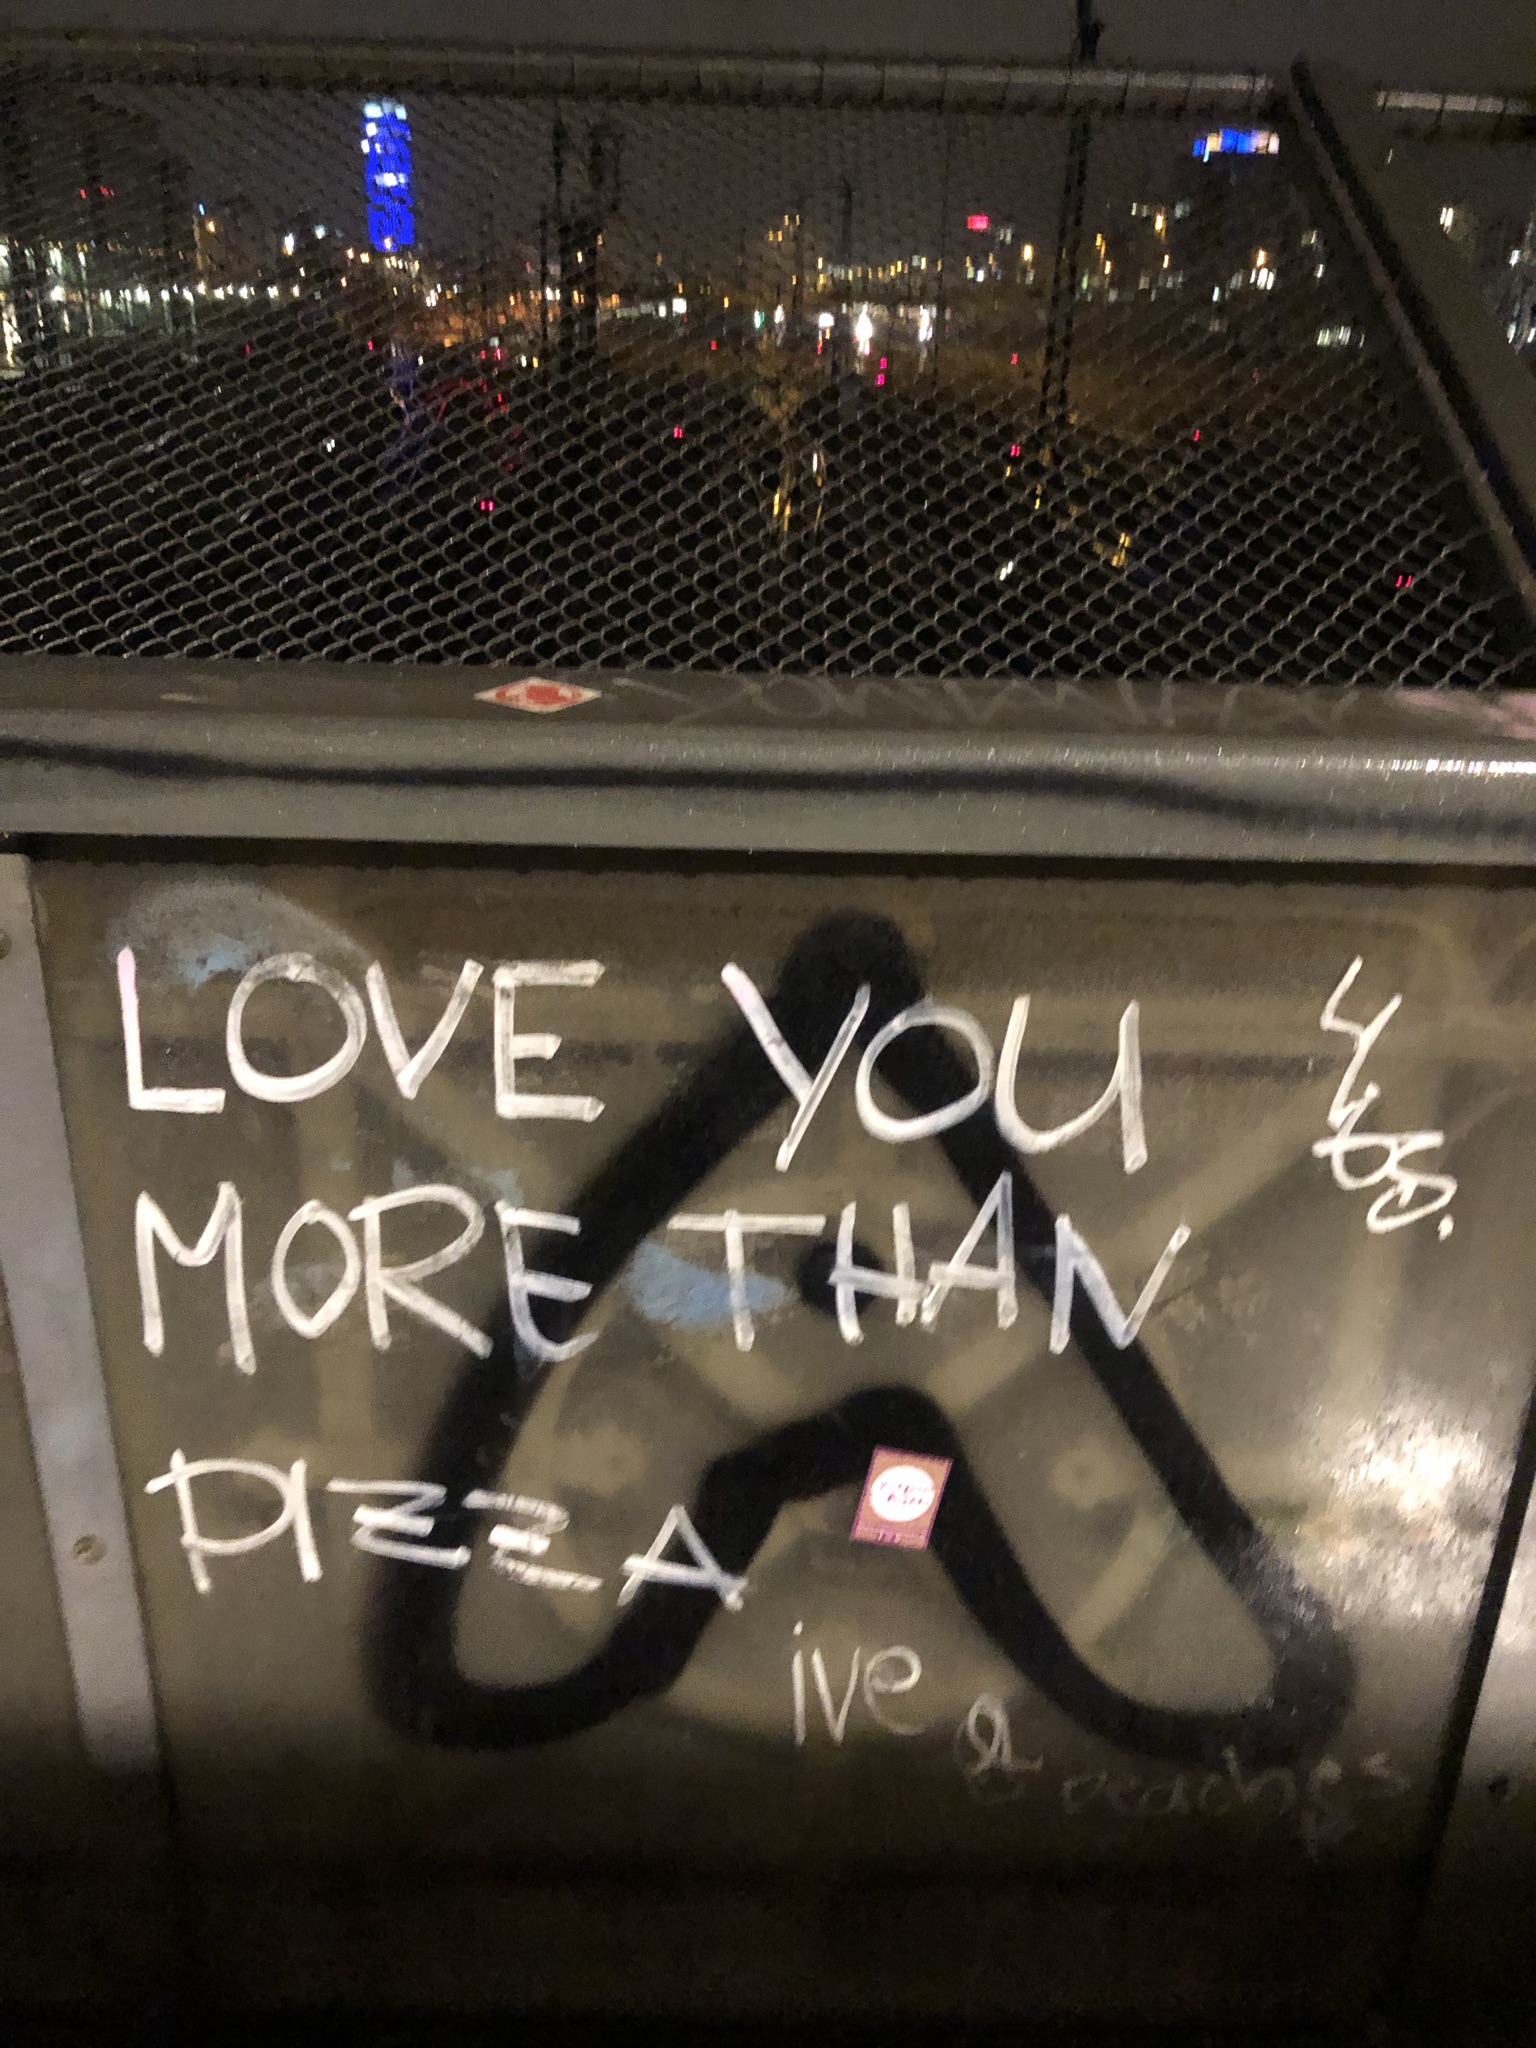 LOVE YOU
MORE THAN
PIZZA
ive